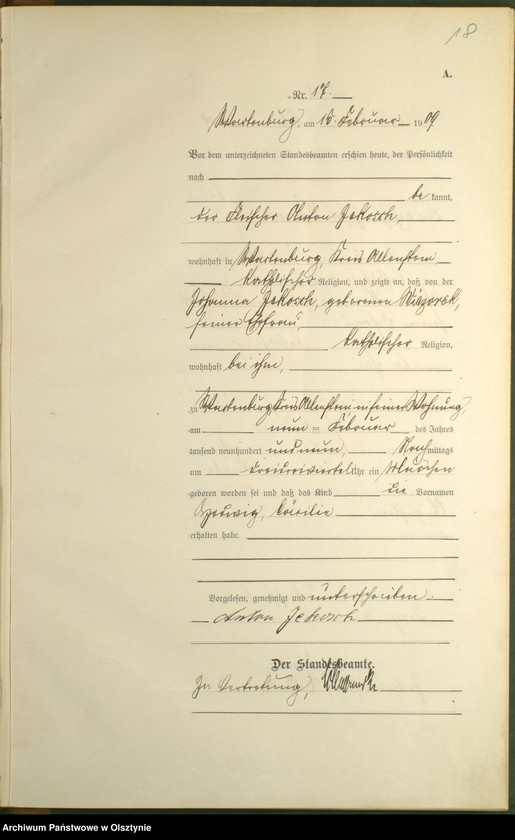 18
A.
Nr. 17.
Wartenburg, am 15. Februar 1909
Vor dem unterzeichneten Standesbeamten erschien heute, der Persönlichkeit
nach
bekannt,
der Fleischer Anton Jekosch,
wohnhaft in Wartenburg, Kreis Allenstein
katholischer Religion, und zeigte an, daß von der
Johanna Jekosch, geborenen
seiner Ehefrau,
katholischer Religion,
wohnhaft bei ihm,
zu Wartenburg, Kreis Allenstein, in seiner Wohnung,
am neun ten Februar des Jahres
tausend neunhundert und neun, Nachmittags
um Uhr ein Mädchen
geboren worden sei und daß das Kind die Vornamen
Hedwig, Cäcilie
erhalten habe.
Vorgelesen, genehmigt und unterschrieben.
Anton Jekosch
Der Standesbeamte.
In Vertretung,
Archiwum Państwowe w Olsztynie